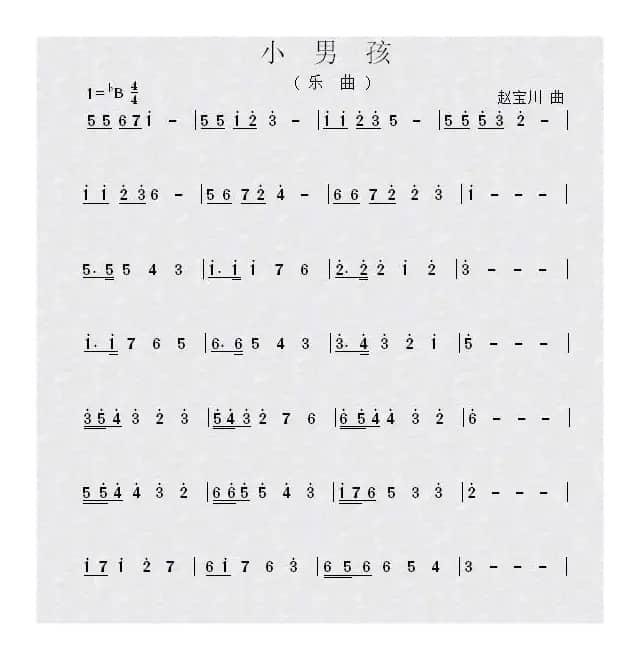 小 男 孩
（乐 曲）
1=♭B 4/4
赵宝川 曲
5 5 6 7 i̇ – |5 5 i̇ 2̇ 3̇ – |i̇ i̇ 2̇ 3̇ 5 – |5̇ 5̇ 5̇ 3̇ 2̇ – |
i̇ i̇ 2̇ 3̇ 6 – |5 6 7 2̇ 4̇ – |6 6 7 2̇ 2̇ 3̇ |i̇ – – – |
5. 5 5 4 3 |i̇. i̇ i̇ 7 6 |2̇. 2̇ 2̇ i̇ 2̇ |3̇ – – – |
i̇. i̇ 7 6 5 |6. 6 5 4 3 |3̇. 4̇ 3̇ 2̇ i̇ |5̇ – – – |
3̇ 5̇ 4̇ 3̇ 2̇ 3̇ |5̇ 4̇ 3̇ 2̇ 7 6 |6̇ 5̇ 4̇ 4̇ 3̇ 2̇ |6̇ – – – |
5 5̇ 4̇ 4̇ 3̇ 2̇ |6 6̇ 5̇ 5̇ 4̇ 3̇ |i̇ 7 6 5 3 3̇ |2̇ – – – |
i̇ 7 i̇ 2̇ 7 |6 i̇ 7 6 3̇ |6 5 6 6 5 4 |3 – – – |